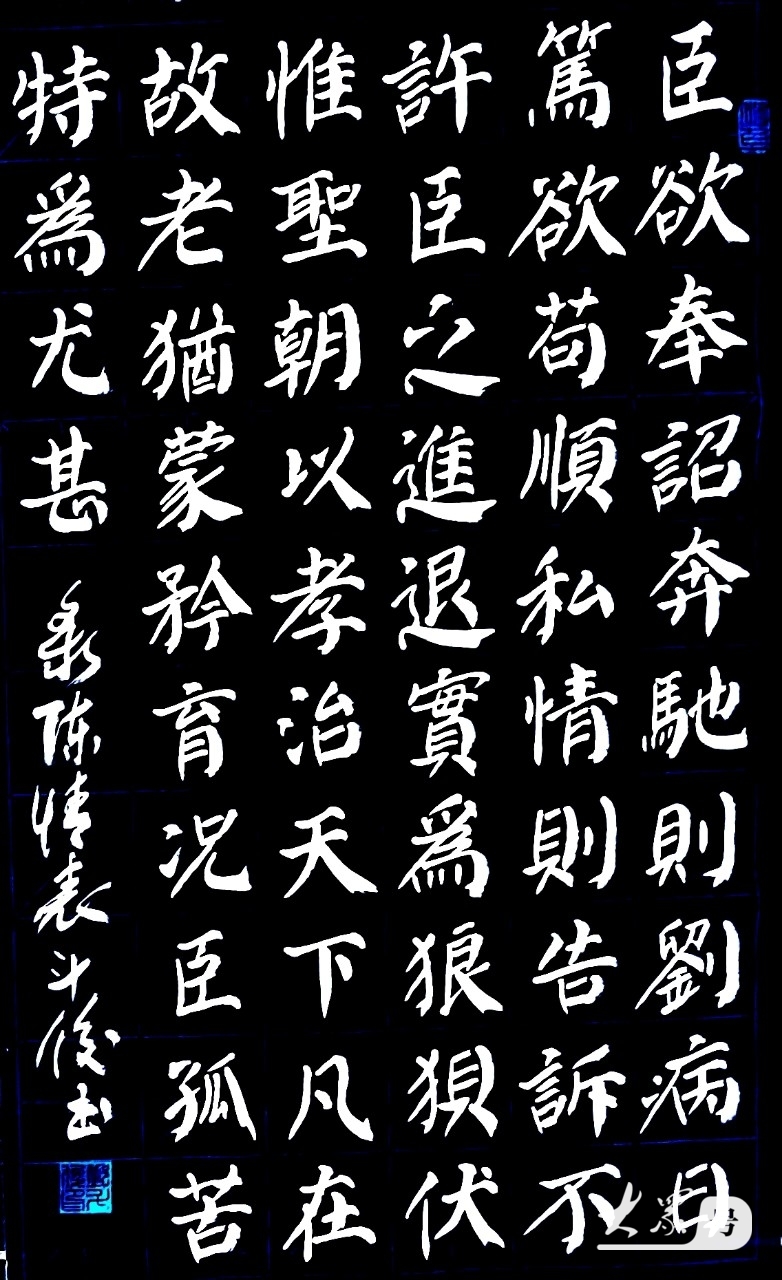 臣欲奉詔奔馳則劉病日
篤欲苟順私情則告訴不
許臣之進退實為狼狽伏
惟聖朝以孝治天下凡在
故老猶蒙矜育况臣孤苦
特為尤甚
录陈情表斗俊书